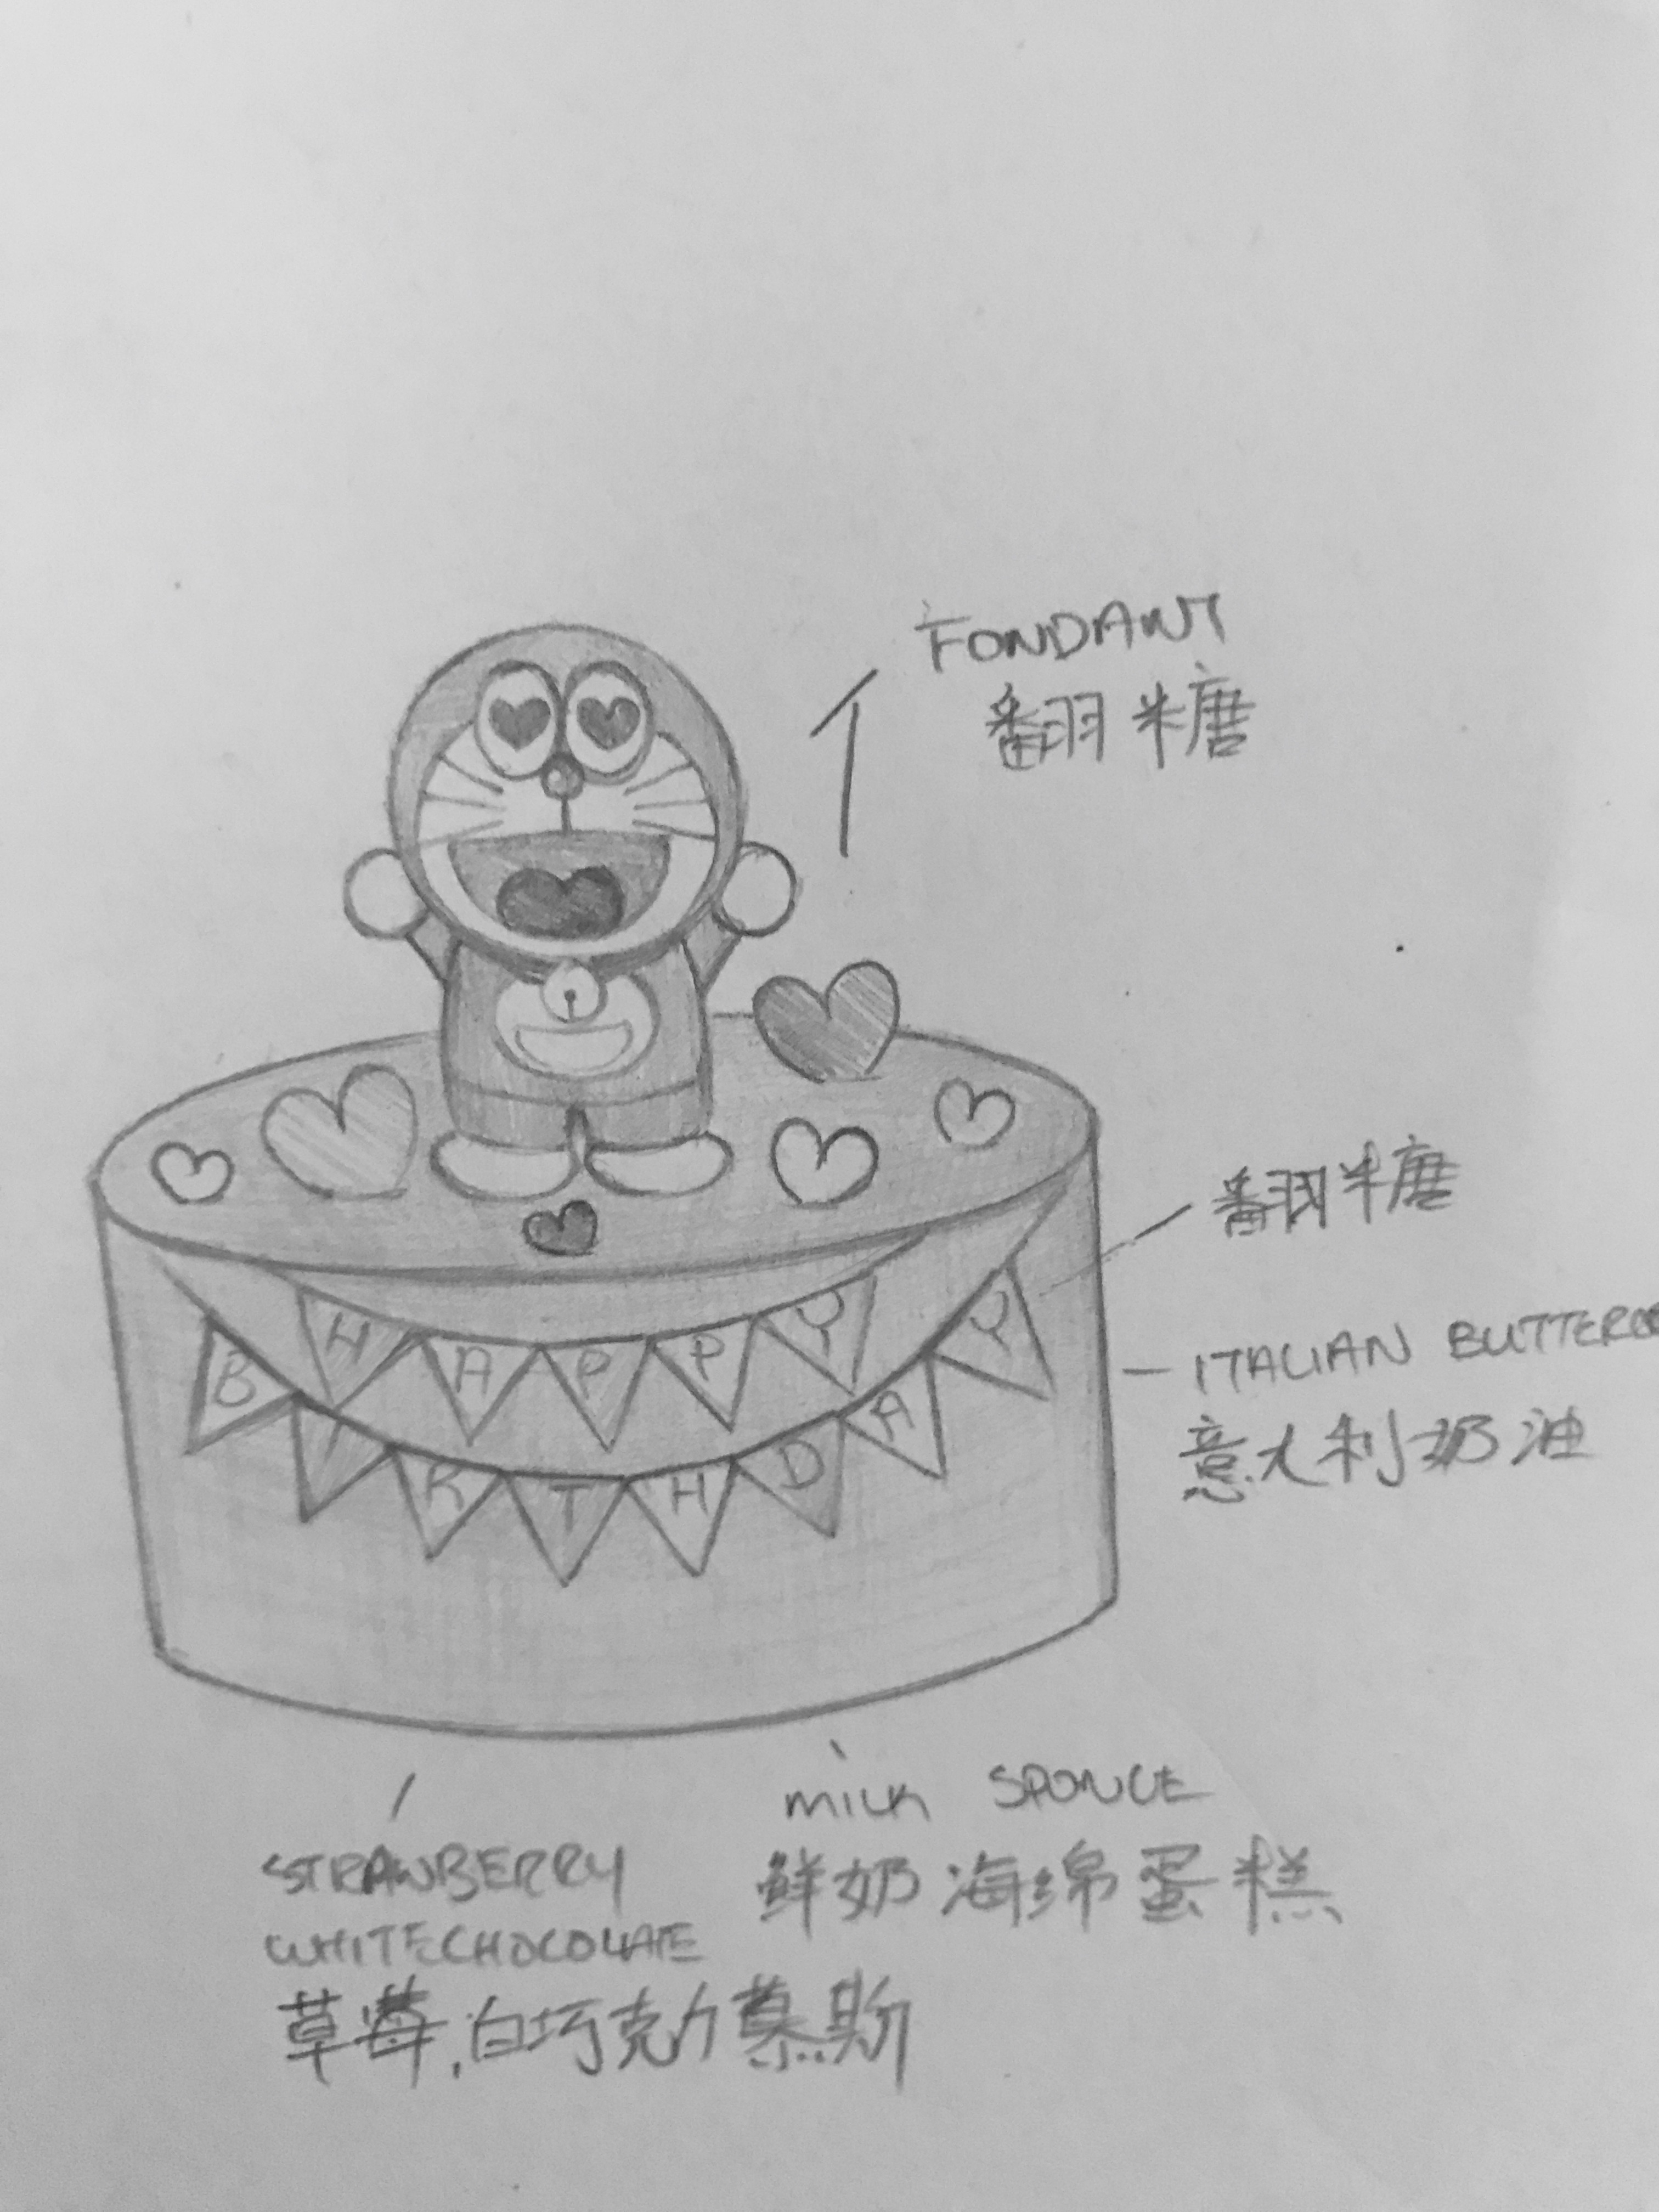 FONDANT
翻糖
HAPPY
BIRTHDAY
翻糖
ITALIAN BUTTERC
意大利奶油
MILK SPONGE
鲜奶海绵蛋糕
STRAWBERRY
WHITECHOCOLATE
草莓,白巧克力慕斯